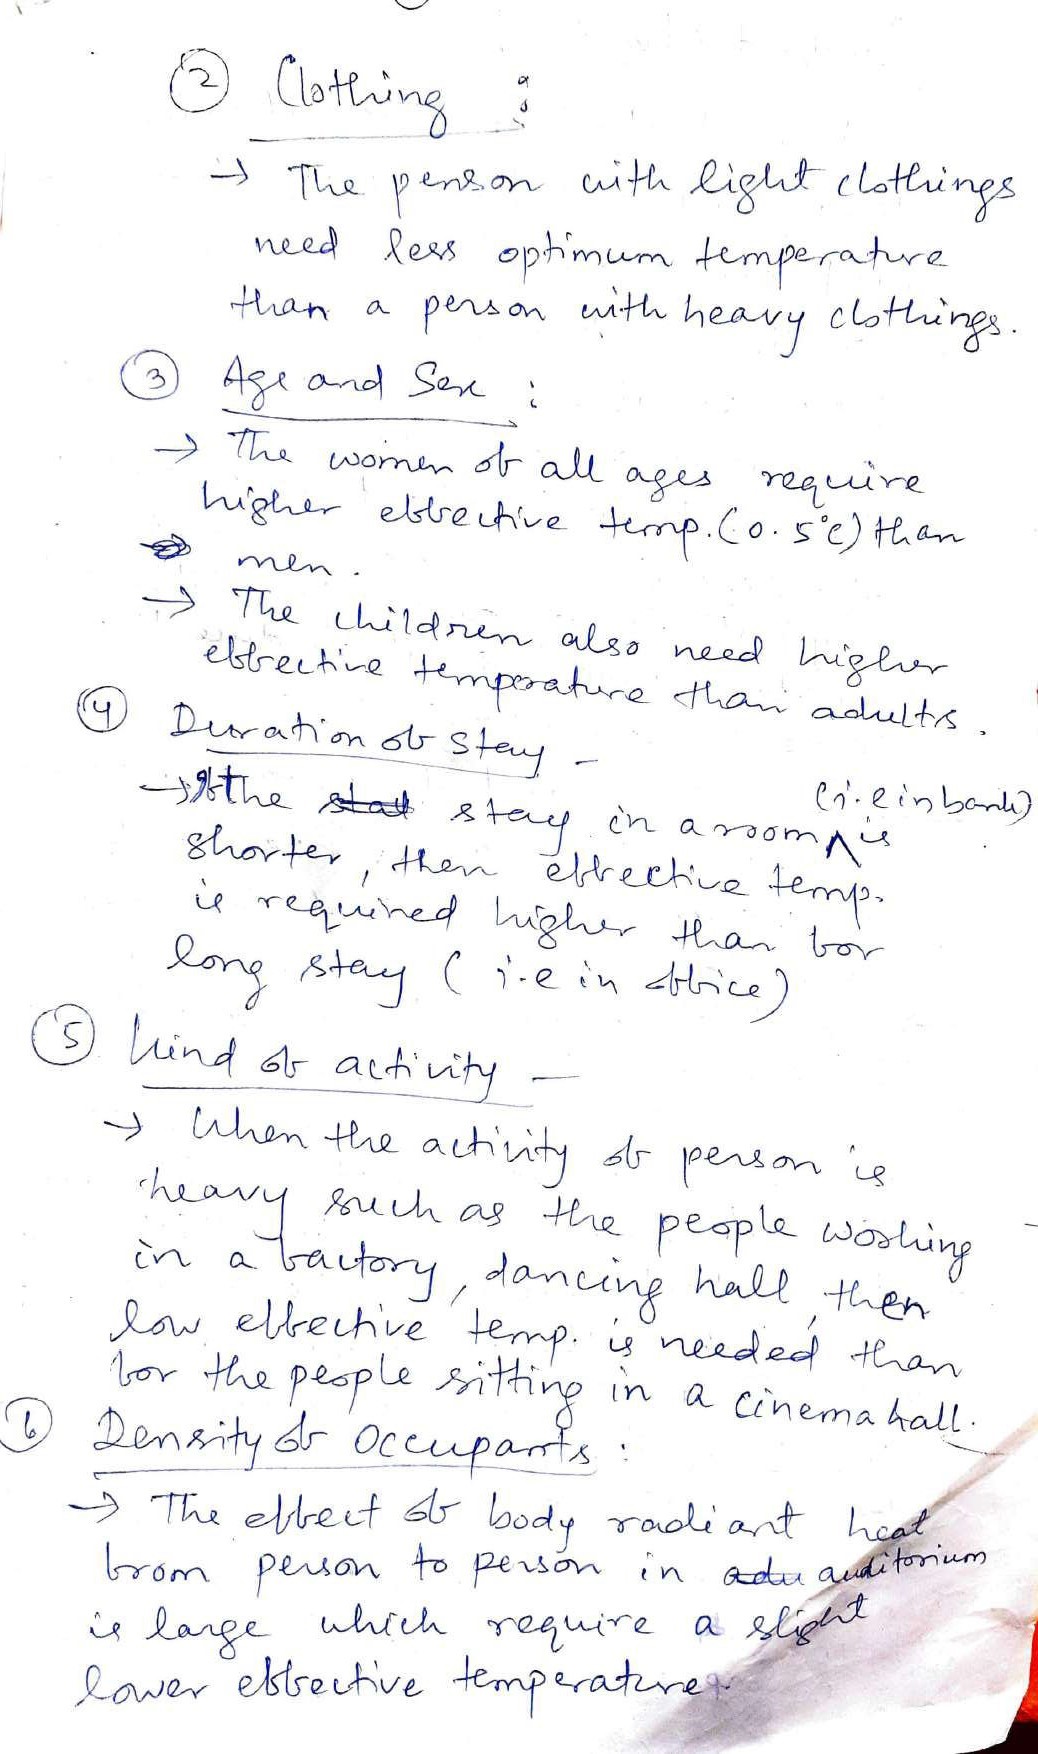 2 Clothing :
→ The person with light clothings
need less optimum temperature
than a person with heavy clothings.
3 Age and Sex :
→ The women of all ages require
higher effective temp. (0.5°C) than
men.
→ The children also need higher
effective temperature than adults.
4 Duration of stay -
→ If the stay in a room (i.e in bank) is
shorter, then effective temp.
is required higher than for
long stay (i.e in office)
5 Kind of activity -
→ When the activity of person is
heavy such as the people working
in a factory, dancing hall, then
low effective temp. is needed than
for the people sitting in a cinema hall.
6 Density of Occupants :
→ The effect of body radiant heat
from person to person in auditorium
is large which require a slight
lower effective temperature.